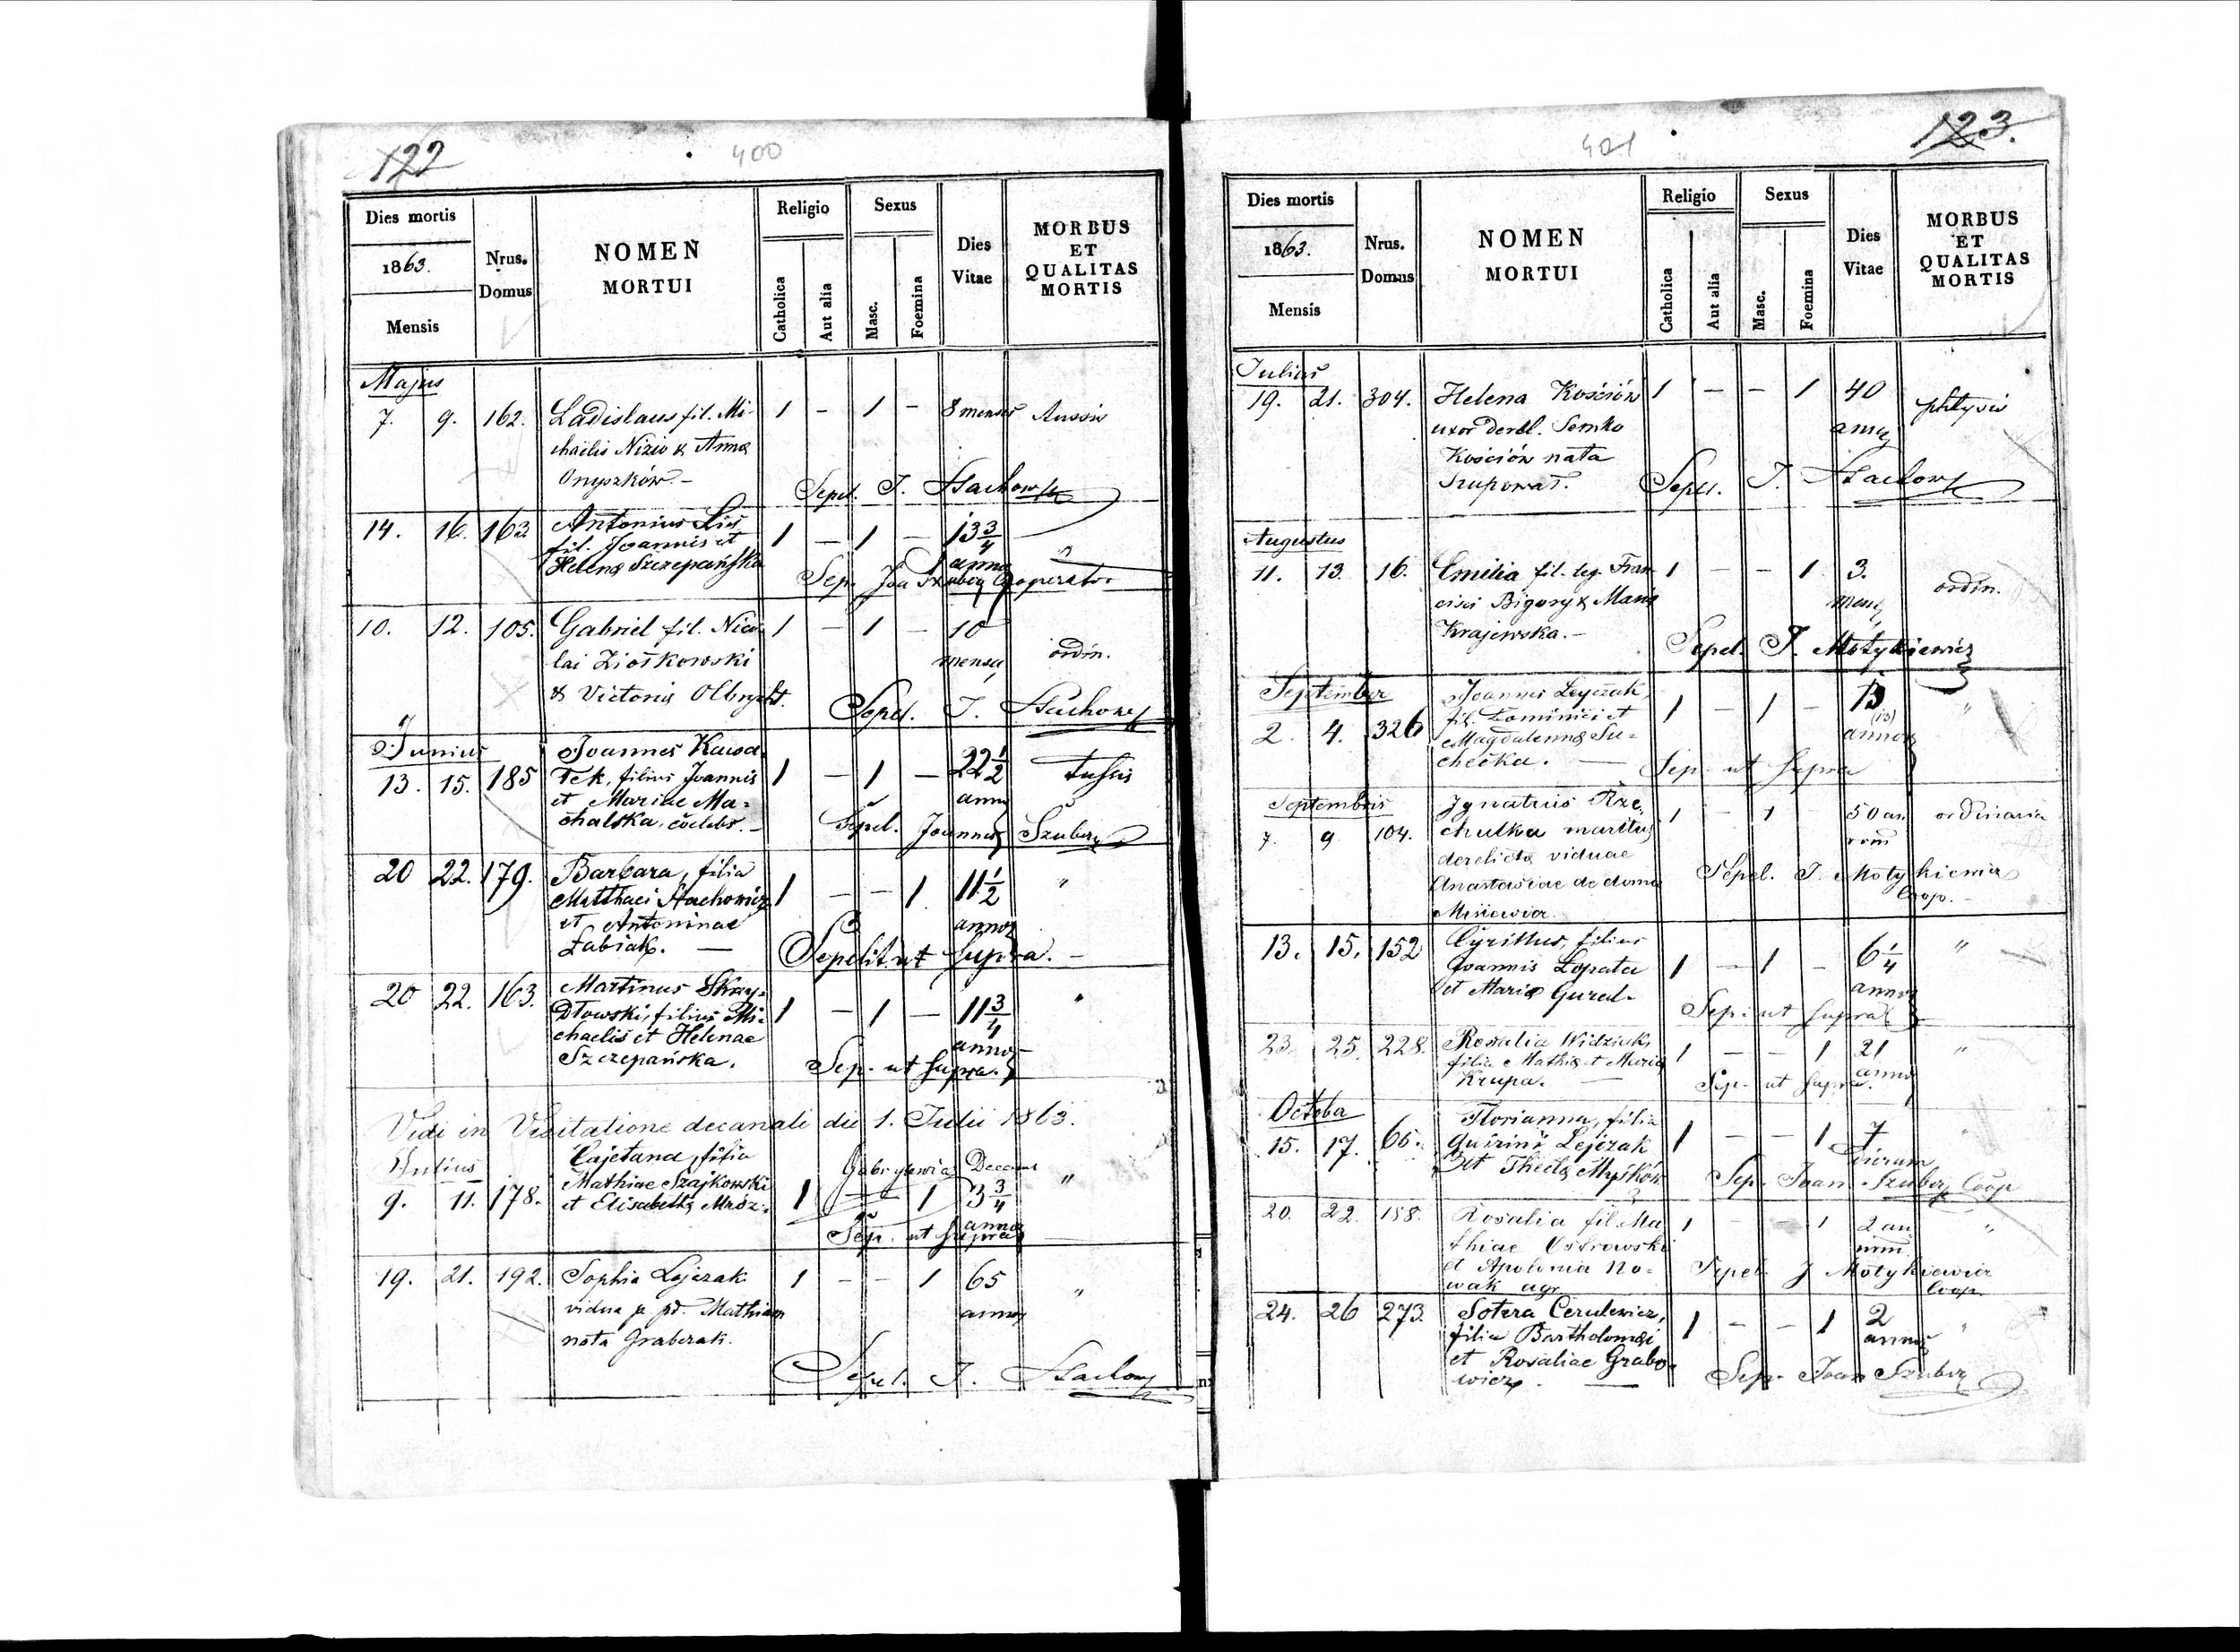 122
400
Dies mortis
1863.
Mensis
Nrus.
Domus
NOMEN
MORTUI
Religio
Catholica
Aut alia
Sexus
Masc.
Foemina
Dies
Vitae
MORBUS
ET
QUALITAS
MORTIS
Majus
7. 9. 162. Ladislaus fil. Mi- 1 - 1 - 8 menses
chaelis Nizio & Anna
Onyszków. -
Sepel. J. Stachow
14. 16. 163 Antonius Lis 1 - 1 - 13 3/4 "
fil. Joannis et
Helena Szczepańska annor
Sep. Joa Szuberz Cooperator
10. 12. 105. Gabriel fil. Nico 1 - 1 - 10 ordin.
lai Ziołkowski mensu
& Victoria Olbrycht.
Sepel. J. Stachow
Junius
13. 15. 185 Joannes Kawa- 1 - 1 - 22 1/2 tussis
łek, filius Joannis
et Mariae Ma- anno
chalska, coelebs. -
Sepel. Joannes Szuberz
20 22. 179. Barbara, filia 1 - - 1 11 1/2 "
Matthaei Stachowicz
et Antoninae annor
Łabiak. -
Sepelit ut supra. -
20 22. 163. Martinus Skrzy- 1 - 1 - 11 3/4 "
dłowski, filius Mi-
chaelis et Helenae annor
Szczepańska.
Sep. ut supra.
Vidi in Visitatione decanali die 1. Julii 1863.
Gabryelewicz Decanus
Julius
9. 11. 178. Cajetana, filia 1 - - 1 3 3/4 "
Mathiae Szajkowski
et Elisabetha Mróz. annor
Sep. ut supra
19. 21. 192. Sophia Lejczak 1 - - 1 65 "
vidua p. pd. Mathiam annor
nata Graberak.
Sepel. J. Stachow
401
123.
Dies mortis
1863.
Mensis
Nrus.
Domus
NOMEN
MORTUI
Religio
Catholica
Aut alia
Sexus
Masc.
Foemina
Dies
Vitae
MORBUS
ET
QUALITAS
MORTIS
Julius
19. 21. 304. Helena Kościów 1 - - 1 40 phtysis
uxor derel. Semko anno
Kościów nata
Szupował.
Sepel. J. Stachow
Augustus
11. 13. 16. Emilia fil. leg. Fran 1 - - 1 3. ordin.
cisci Bigory & Maria mens
Krajewska. -
Sepel. J. Motykiewicz
September
2. 4. 326 Joannes Leyczak, 1 - 1 - 13 "
fil. Dominici et (13)
Magdalenna Su- annor
checka. -
Sep. ut supra
Septembris
7. 9 104. Ignatius Rze- 1 - 1 50 an ordinaria
chulka maritus rom
derelicta viduae
Anastasiae de domo
Misiewicz.
Sepel. J. Motykiewicz
Coop.
13. 15. 152 Cyrillus, filius 1 - 1 - 6 1/4 "
Joannis Łopata
et Maria Gural. annor
Sep. ut supra
23. 25. 228. Rosalia Widziak, 1 - - 1 21 "
filia Mathia et Maria anno
Krupa. -
Sep. ut supra.
Octoba
15. 17. 65. Florianna, filia 1 - - 1 7 "
Quirini Lejczak dierum
et Thecla Myśków
Sep. Joan Szuberz Coop
20. 22. 188. Rosalia fil. Ma 1 - - 1 2 an "
thiae Ostrowski
et Apolonia No-
wak agr
Sepel. J Motykiewicz
Coop.
24. 26 273. Sotera Cerulewicz, 1 - - 1 2 "
filia Bartholomei annor
et Rosaliae Grabo-
wicz. -
Sep. Joan Szuberz